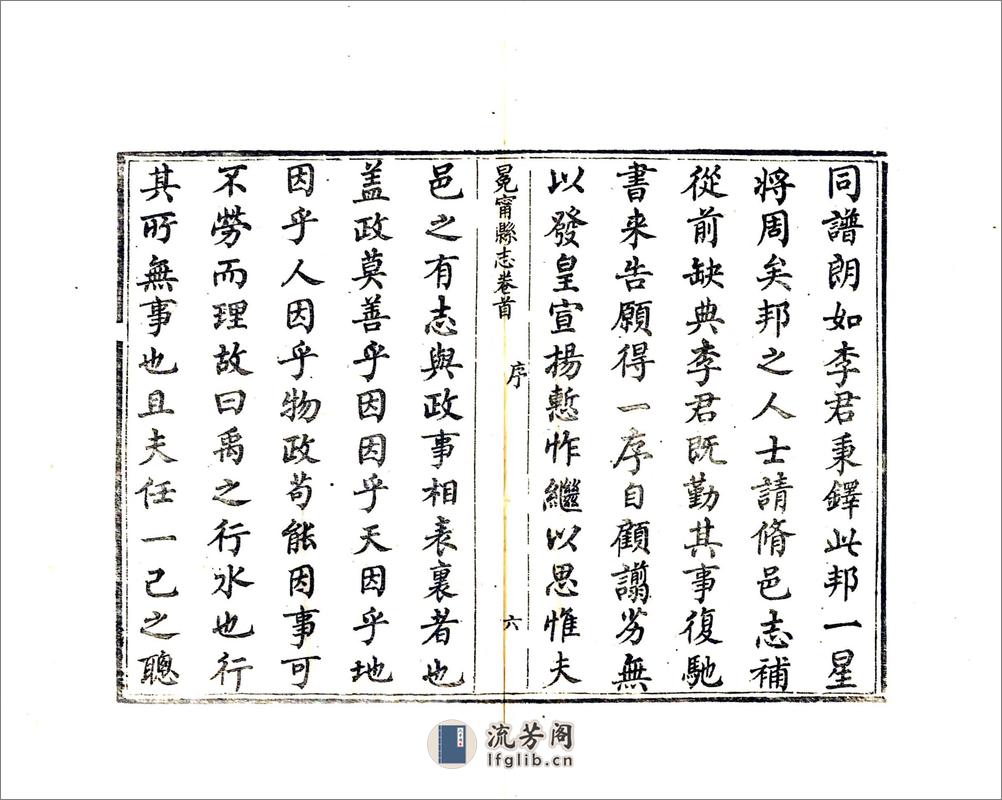 同譜朗如李君秉鐸此邦一星
將周矣邦之人士請脩邑志補
從前缺典李君既勤其事復馳
書来告願得一序自顧謭劣無
以發皇宣揚慙怍繼以思惟夫
冕甯縣志卷首 序 六
邑之有志與政事相表裏者也
盖政莫善乎因因乎天因乎地
因乎人因乎物政苟能因事可
不勞而理故曰禹之行水也行
其所無事也且夫任一己之聰
流芳阁
lfglib.cn